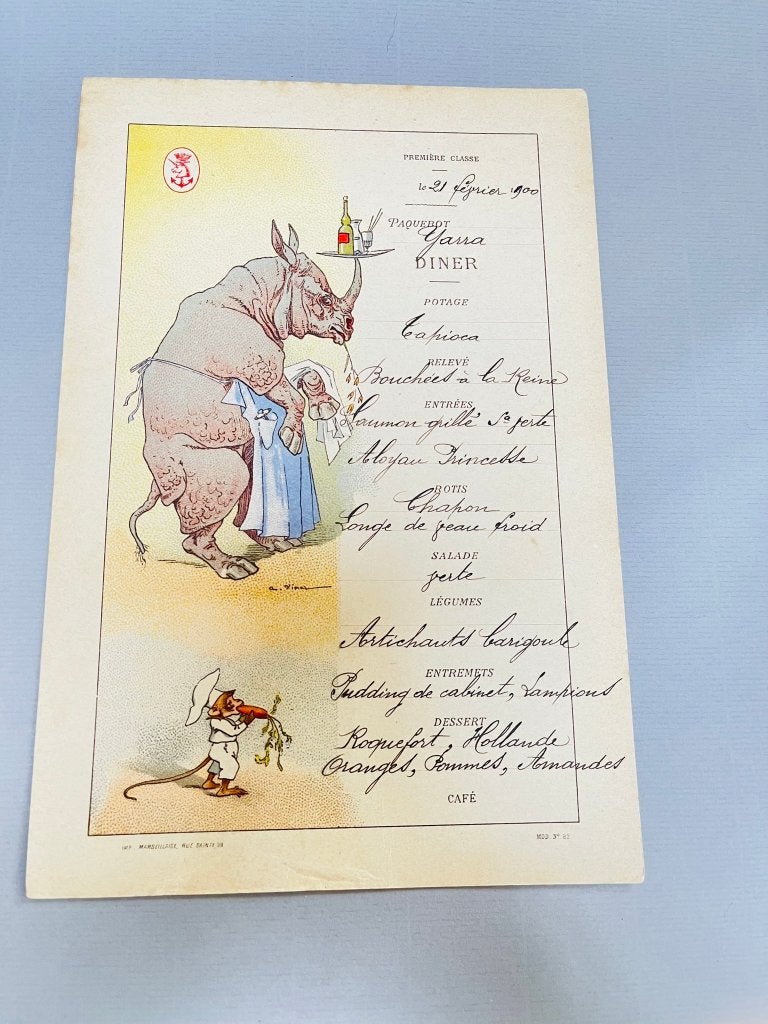 PREMIÈRE CLASSE
le 21 février 1900
PAQUEBOT
Yarra
DINER
POTAGE
Tapioca
RELEVÉ
Bouchées à la Reine
ENTRÉES
Saumon grillé Sce verte
Aloyau Princesse
ROTIS
Chapon
Longe de veau froid
SALADE
verte
LÉGUMES
Artichauts barigoule
ENTREMETS
Pudding de cabinet, Lampions
DESSERT
Roquefort, Hollande
Oranges, Pommes, Amandes
CAFÉ
A. Vimar
IMP. MARSEILLAISE, RUE SAINTE 39